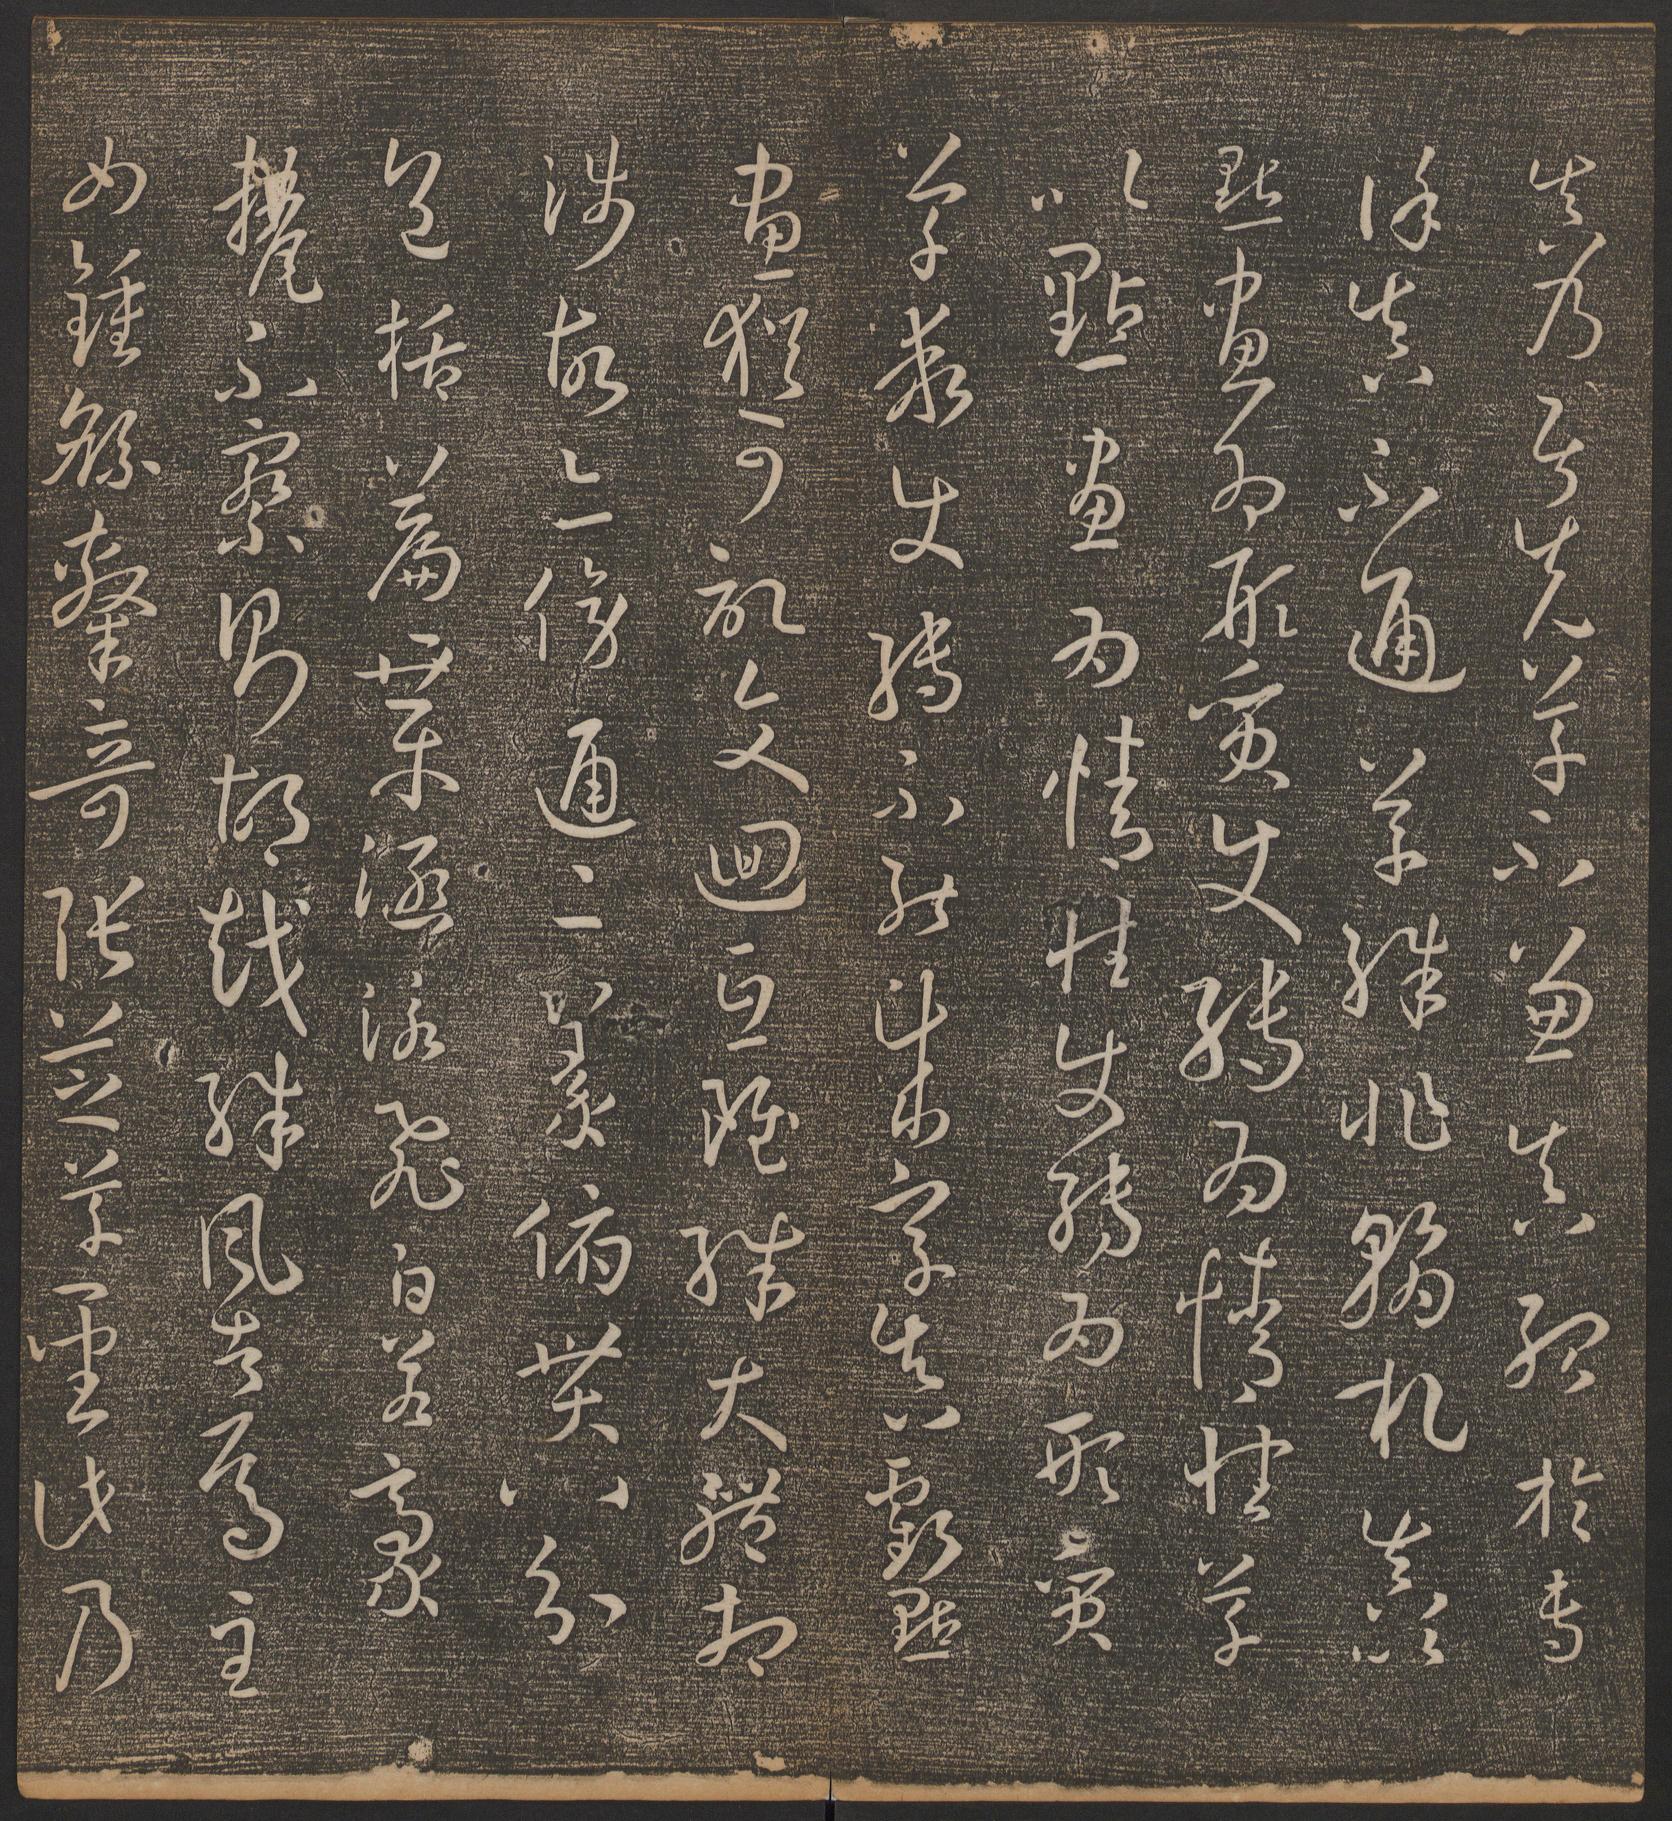 真乃居先草不兼真殆於專
謹真不通草殊非翰札真以
點畫為形質使轉為情性草
以點畫為情性使轉為形質
草乖使轉不能成字真虧點
畫猶可記文迴互雖殊大體相
涉故亦傍通二篆俯貫八分
包括篇章涵泳飛白若豪
氂不察則胡越殊風者焉至
如鍾繇隸奇張芝草聖此乃